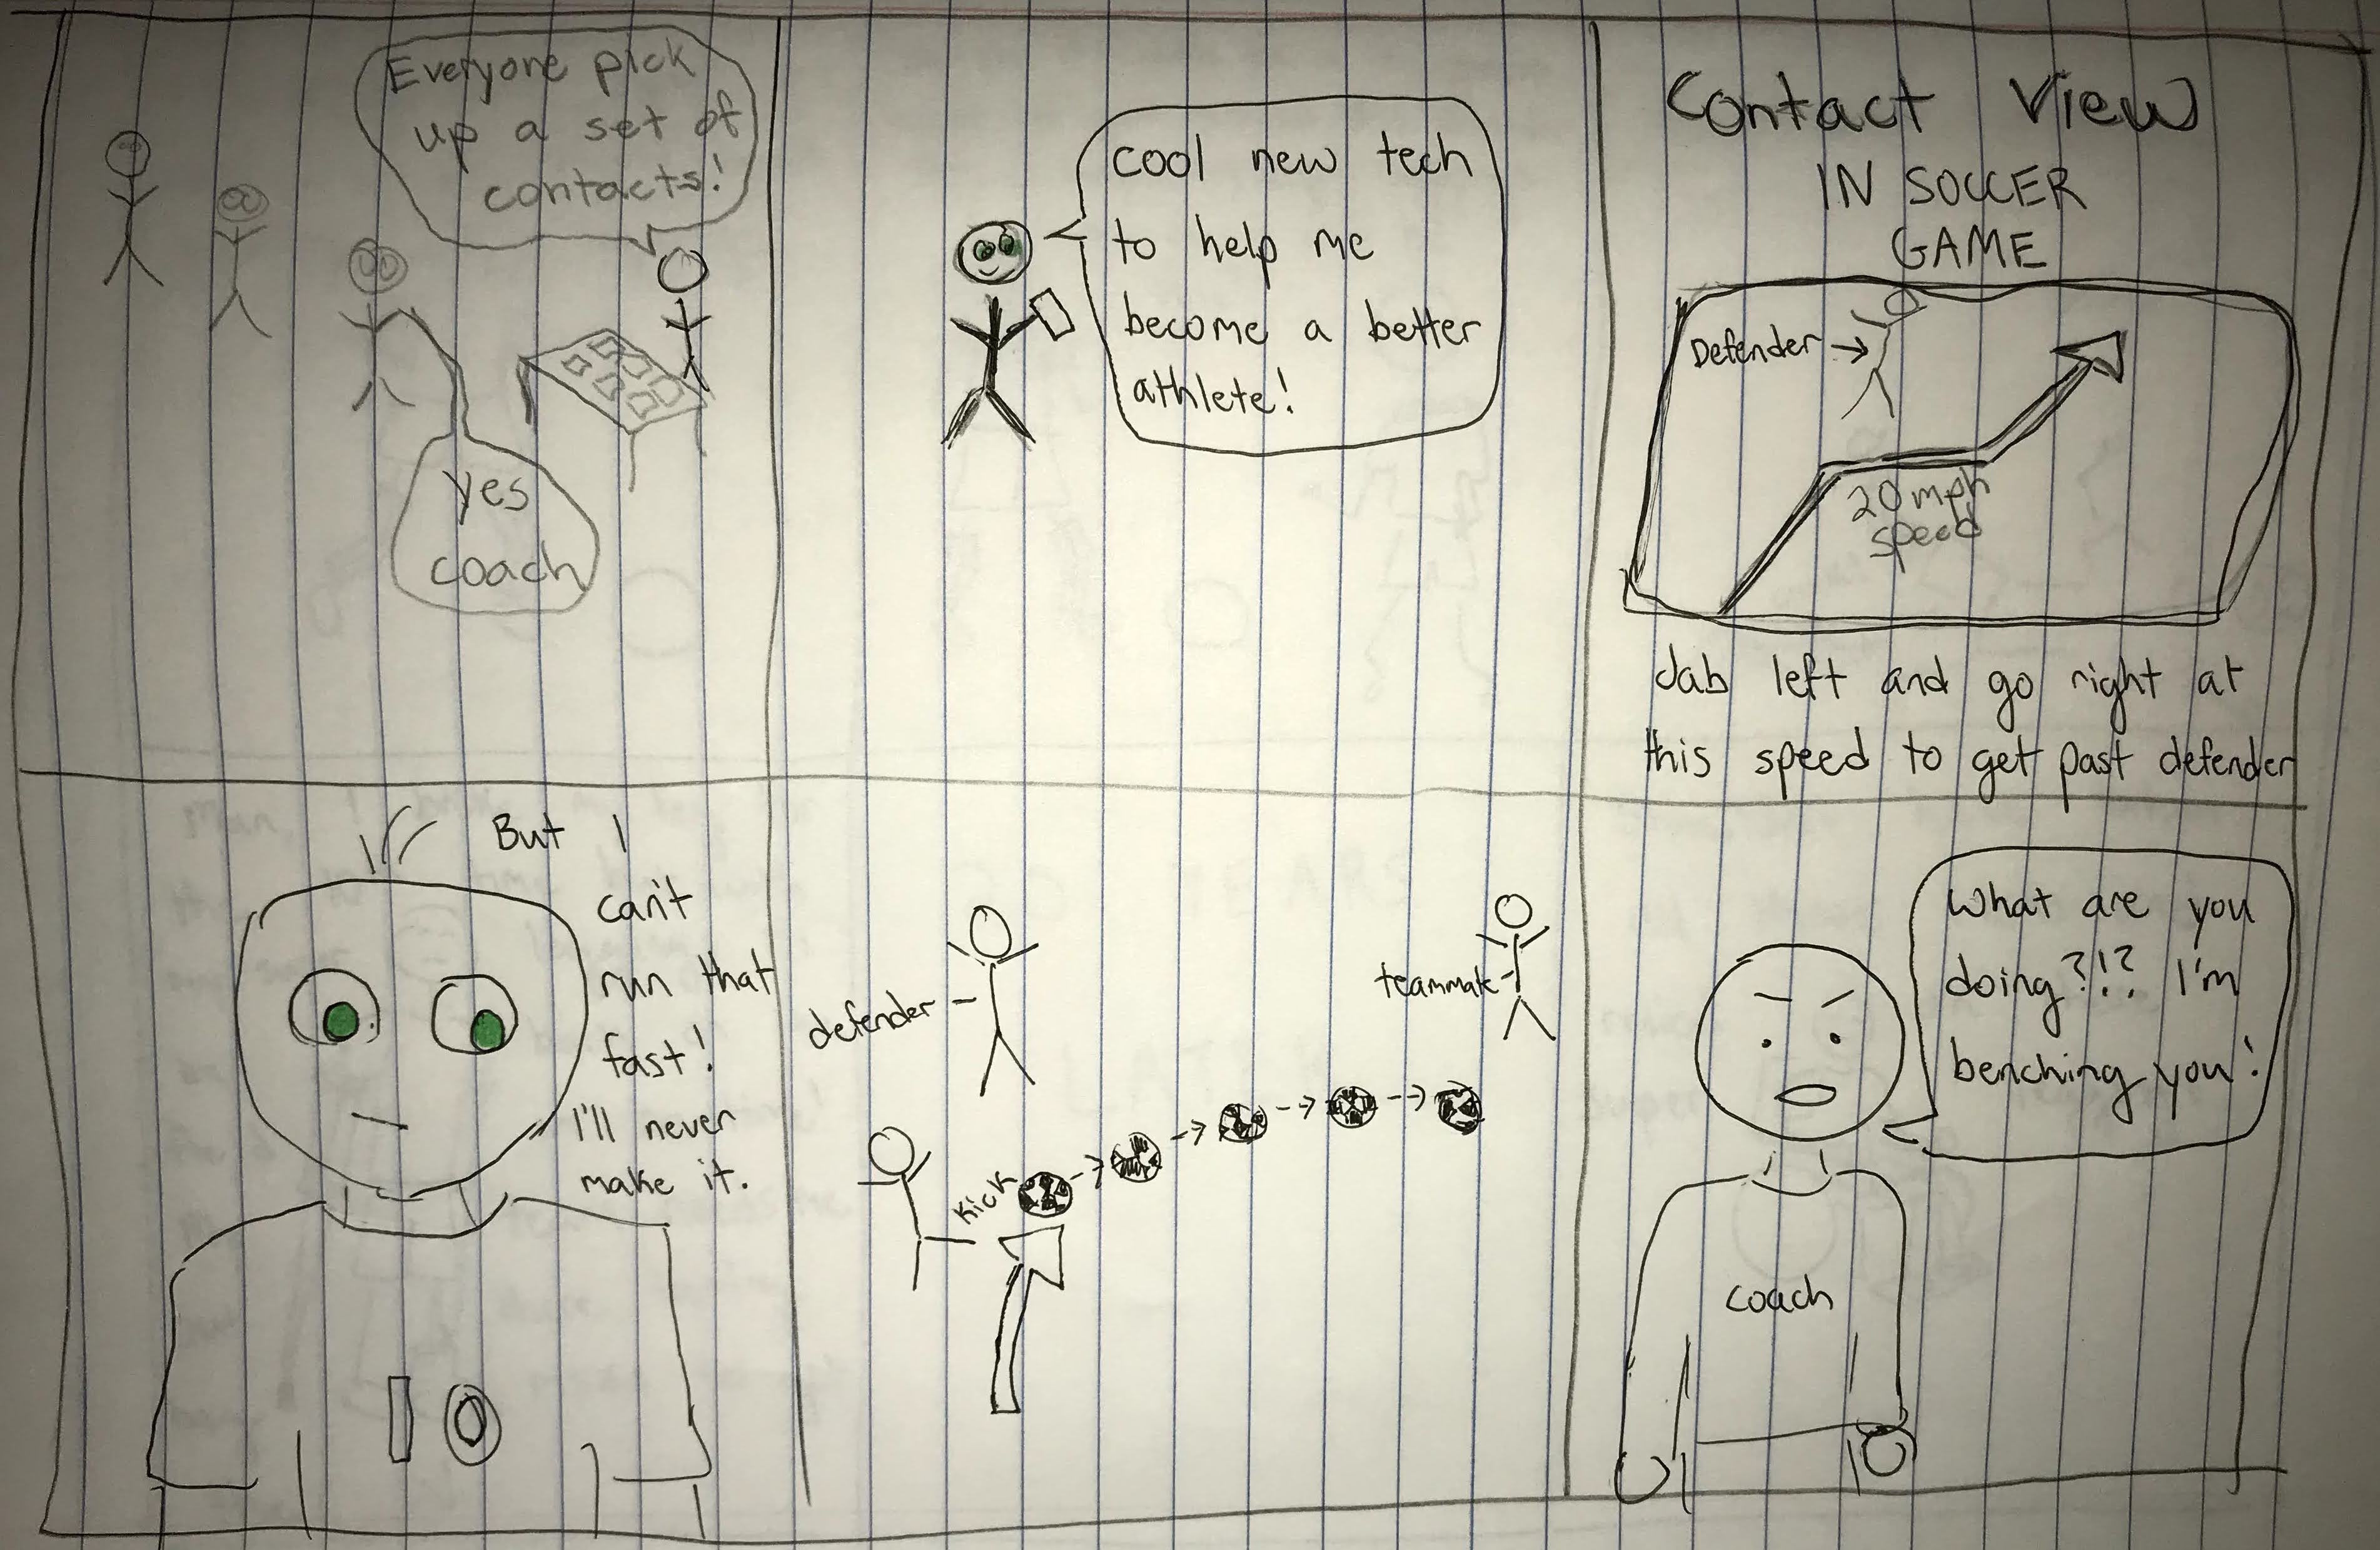 Everyone pick
up a set of
contacts!
yes
coach
cool new tech
to help me
become a better
athlete!
Contact View
IN SOCCER
GAME
Defender
20 mph
speed
Jab left and go right at
this speed to get past defender
But I
can't
run that
fast!
I'll never
make it.
10
defender
teammate
Kick
What are you
doing?!? I'm
benching you!
coach